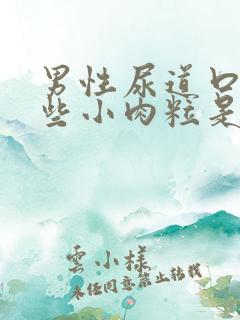 男性尿道口
些小肉粒是
雲小樣
未经同意禁止转载